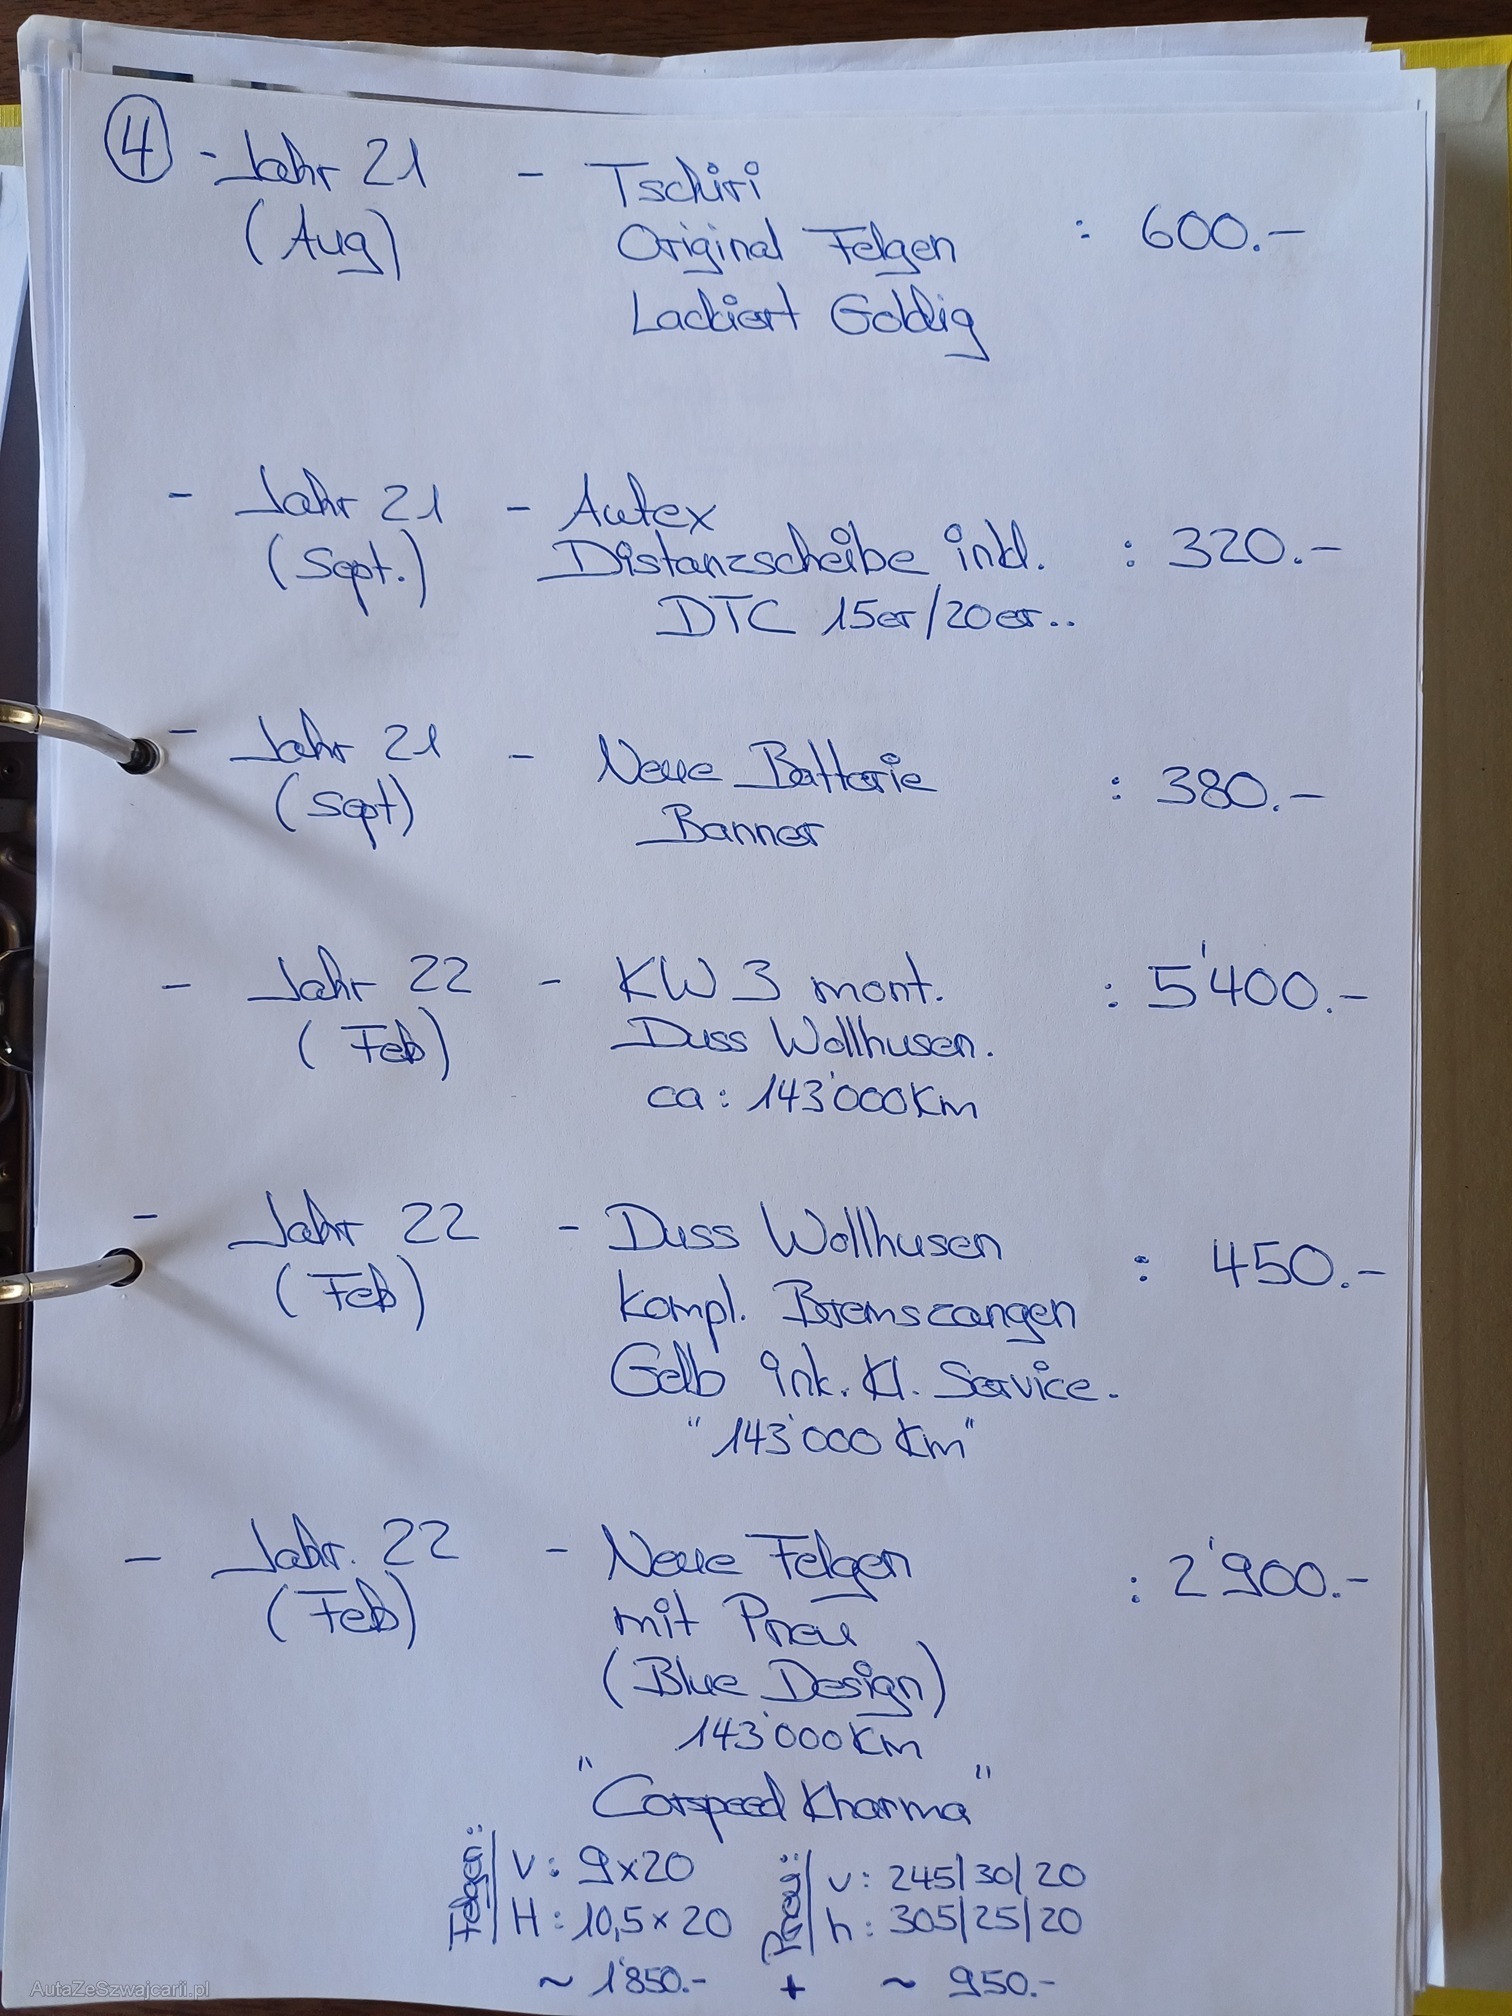 ④ - Jahr 21 - Tschiri
(Aug) Original Felgen : 600.-
Lackiert Goldig
- Jahr 21 - Autex
(Sept.) Distanzscheibe inkl. : 320.-
DTC 15er/20er..
- Jahr 21 - Neue Batterie : 380.-
(Sept) Banner
- Jahr 22 - KW 3 mont. : 5'400.-
(Feb) Duss Wollhusen.
ca: 143'000 Km
- Jahr 22 - Duss Wollhusen : 450.-
(Feb) kompl. Bremszangen
Gelb ink. Kl. Service.
"143'000 Km"
- Jahr. 22 - Neue Felgen : 2'900.-
(Feb) mit Pneu
(Blue Design)
143'000 Km
"Corspeed Kharma"
Felgen: V: 9x20 Pneu: v: 245/30/20
H: 10,5x20 h: 305/25/20
~ 1'850.- + ~ 950.-
AutaZeSzwajcarii.pl